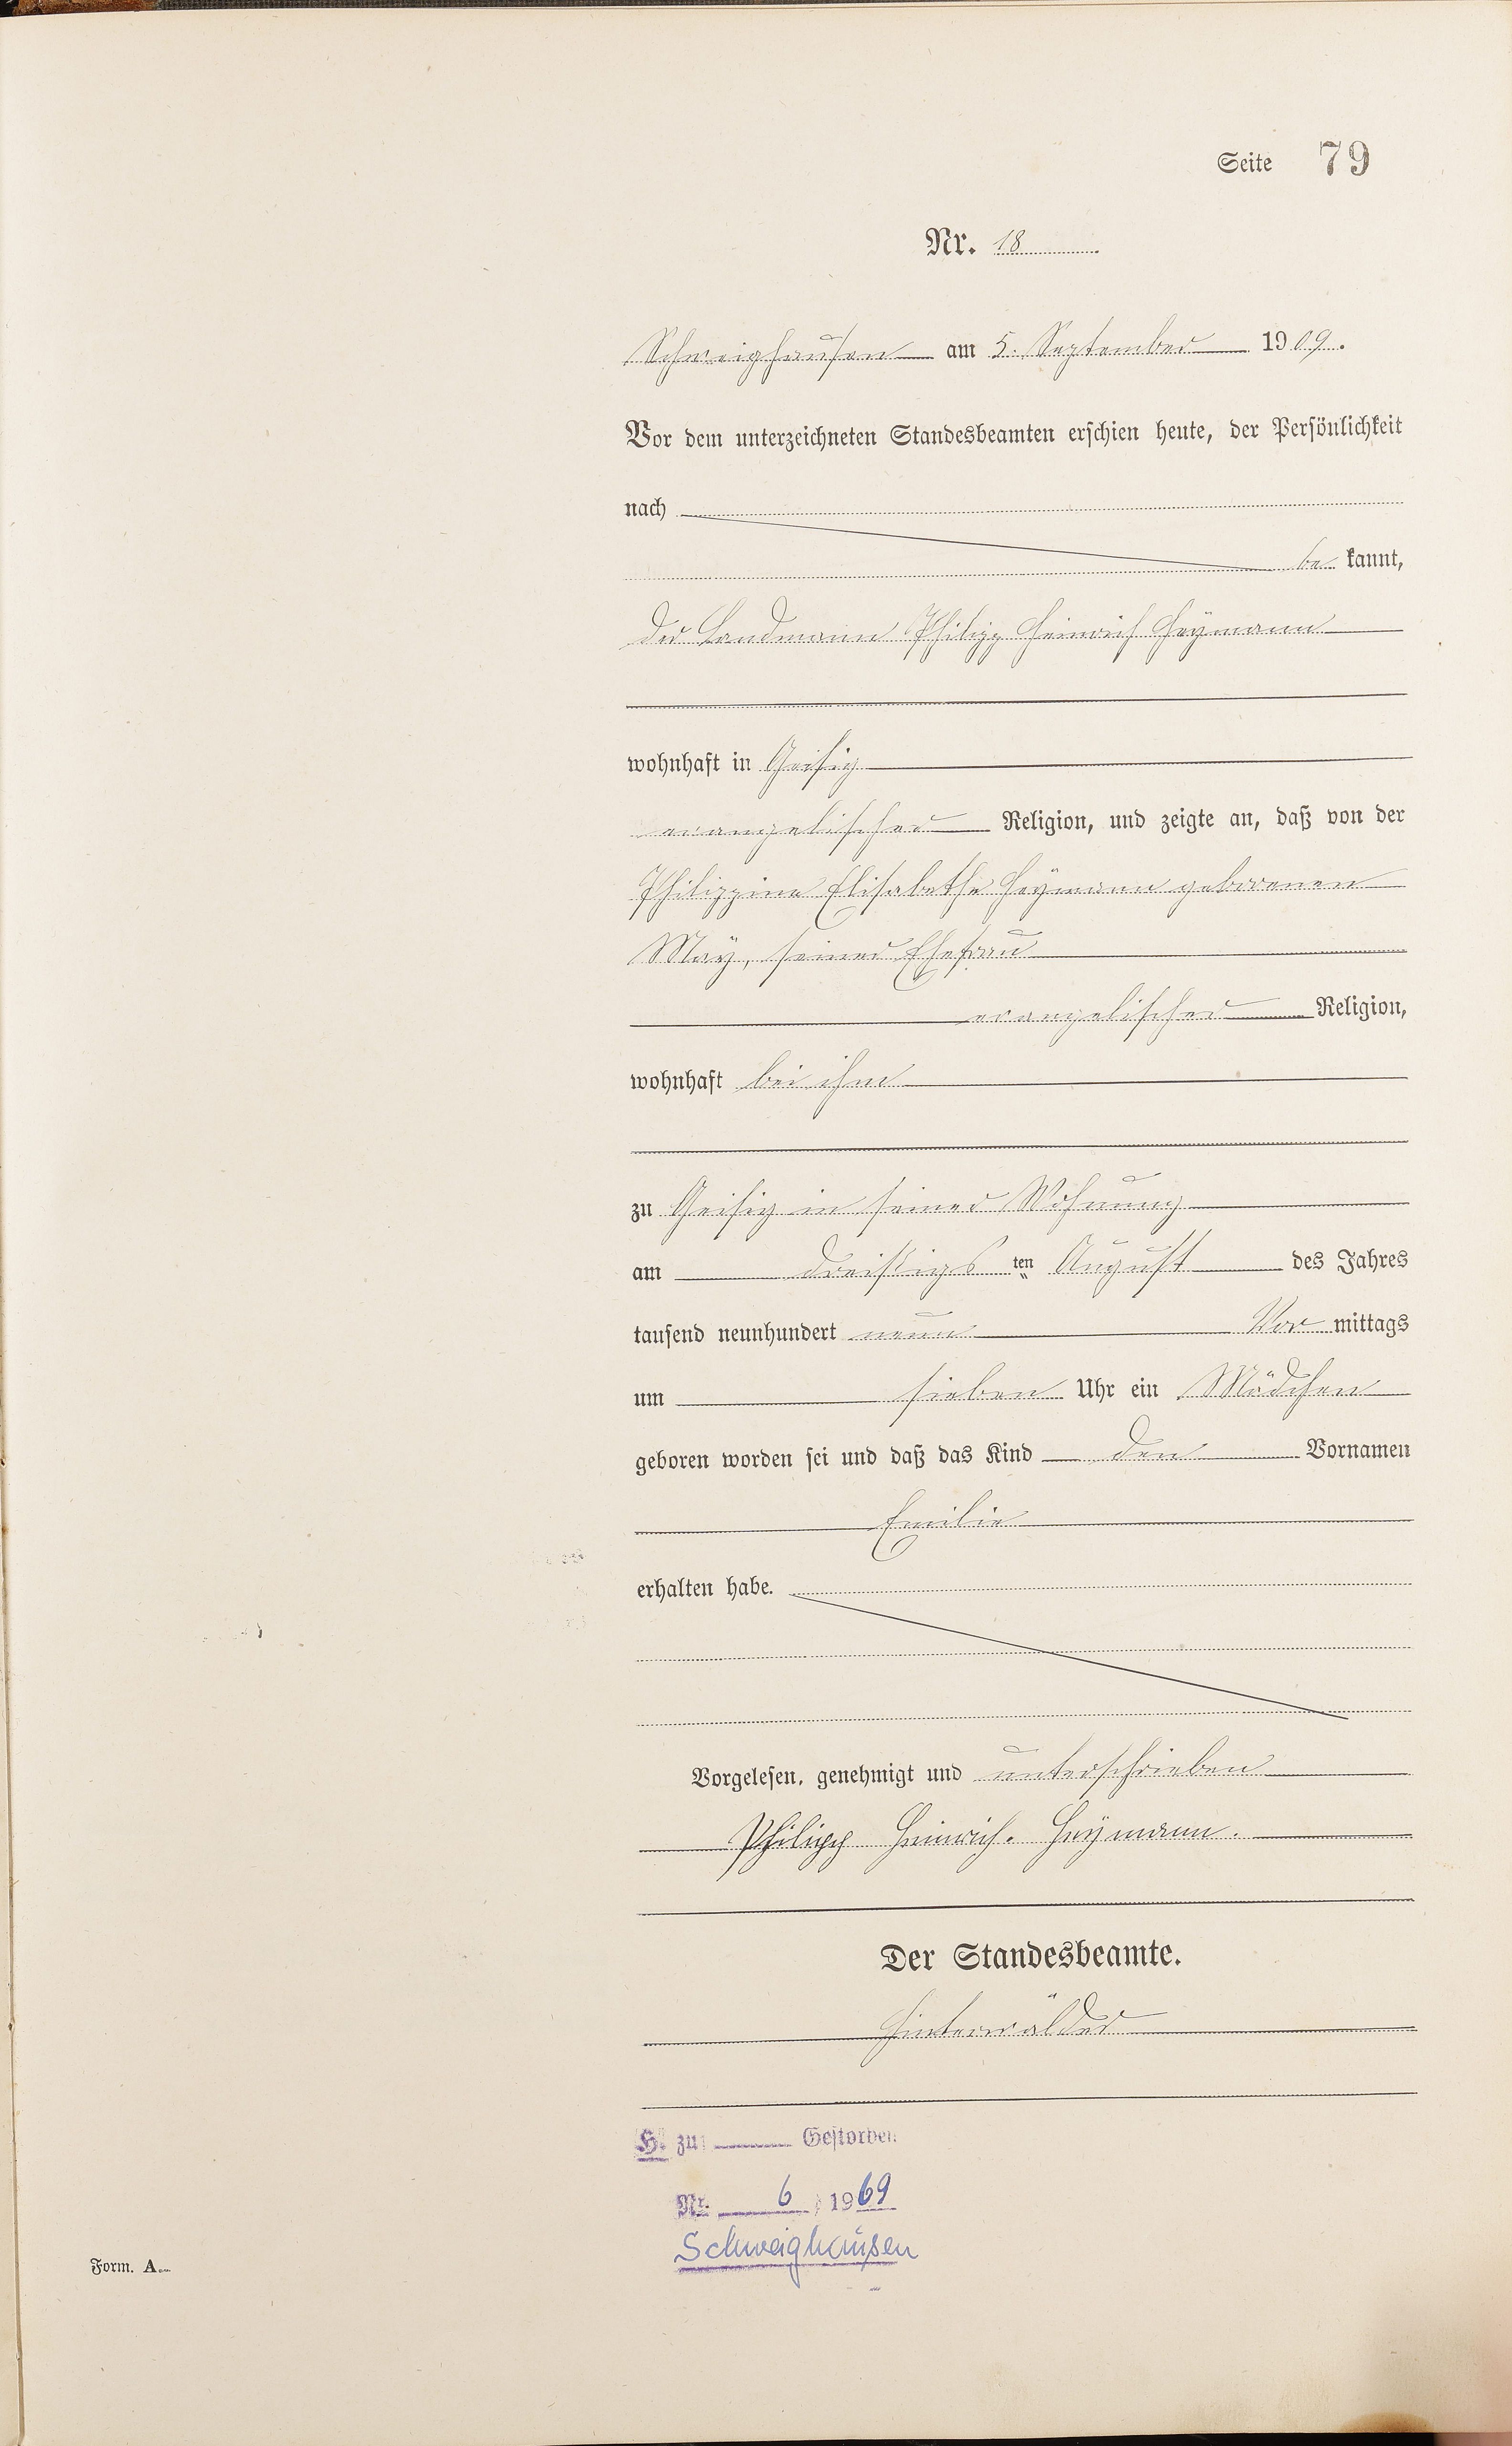 Seite 79
Nr. 18
Schweighausen am 5. September 1909.
Vor dem unterzeichneten Standesbeamten erschien heute, der Persönlichkeit
nach
be kannt,
der Landmann Philipp Heinrich Heymann
wohnhaft in Geisig
evangelischer Religion, und zeigte an, daß von der
Philippine Elisabethe Heymann geborenen
May, seiner Ehefrau
evangelischer Religion,
wohnhaft bei ihm
zu Geisig in seiner Wohnung
am dreißigsten August des Jahres
tausend neunhundert neun Vor mittags
um sieben Uhr ein Mädchen
geboren worden sei und daß das Kind den Vornamen
Emilie
erhalten habe.
Vorgelesen, genehmigt und unterschrieben
Philipp Heinrich. Heymann.
Der Standesbeamte.
Hinterwälder
H. zu: Gestorben
Nr. 6 / 1969
Schweighausen
Form. A.